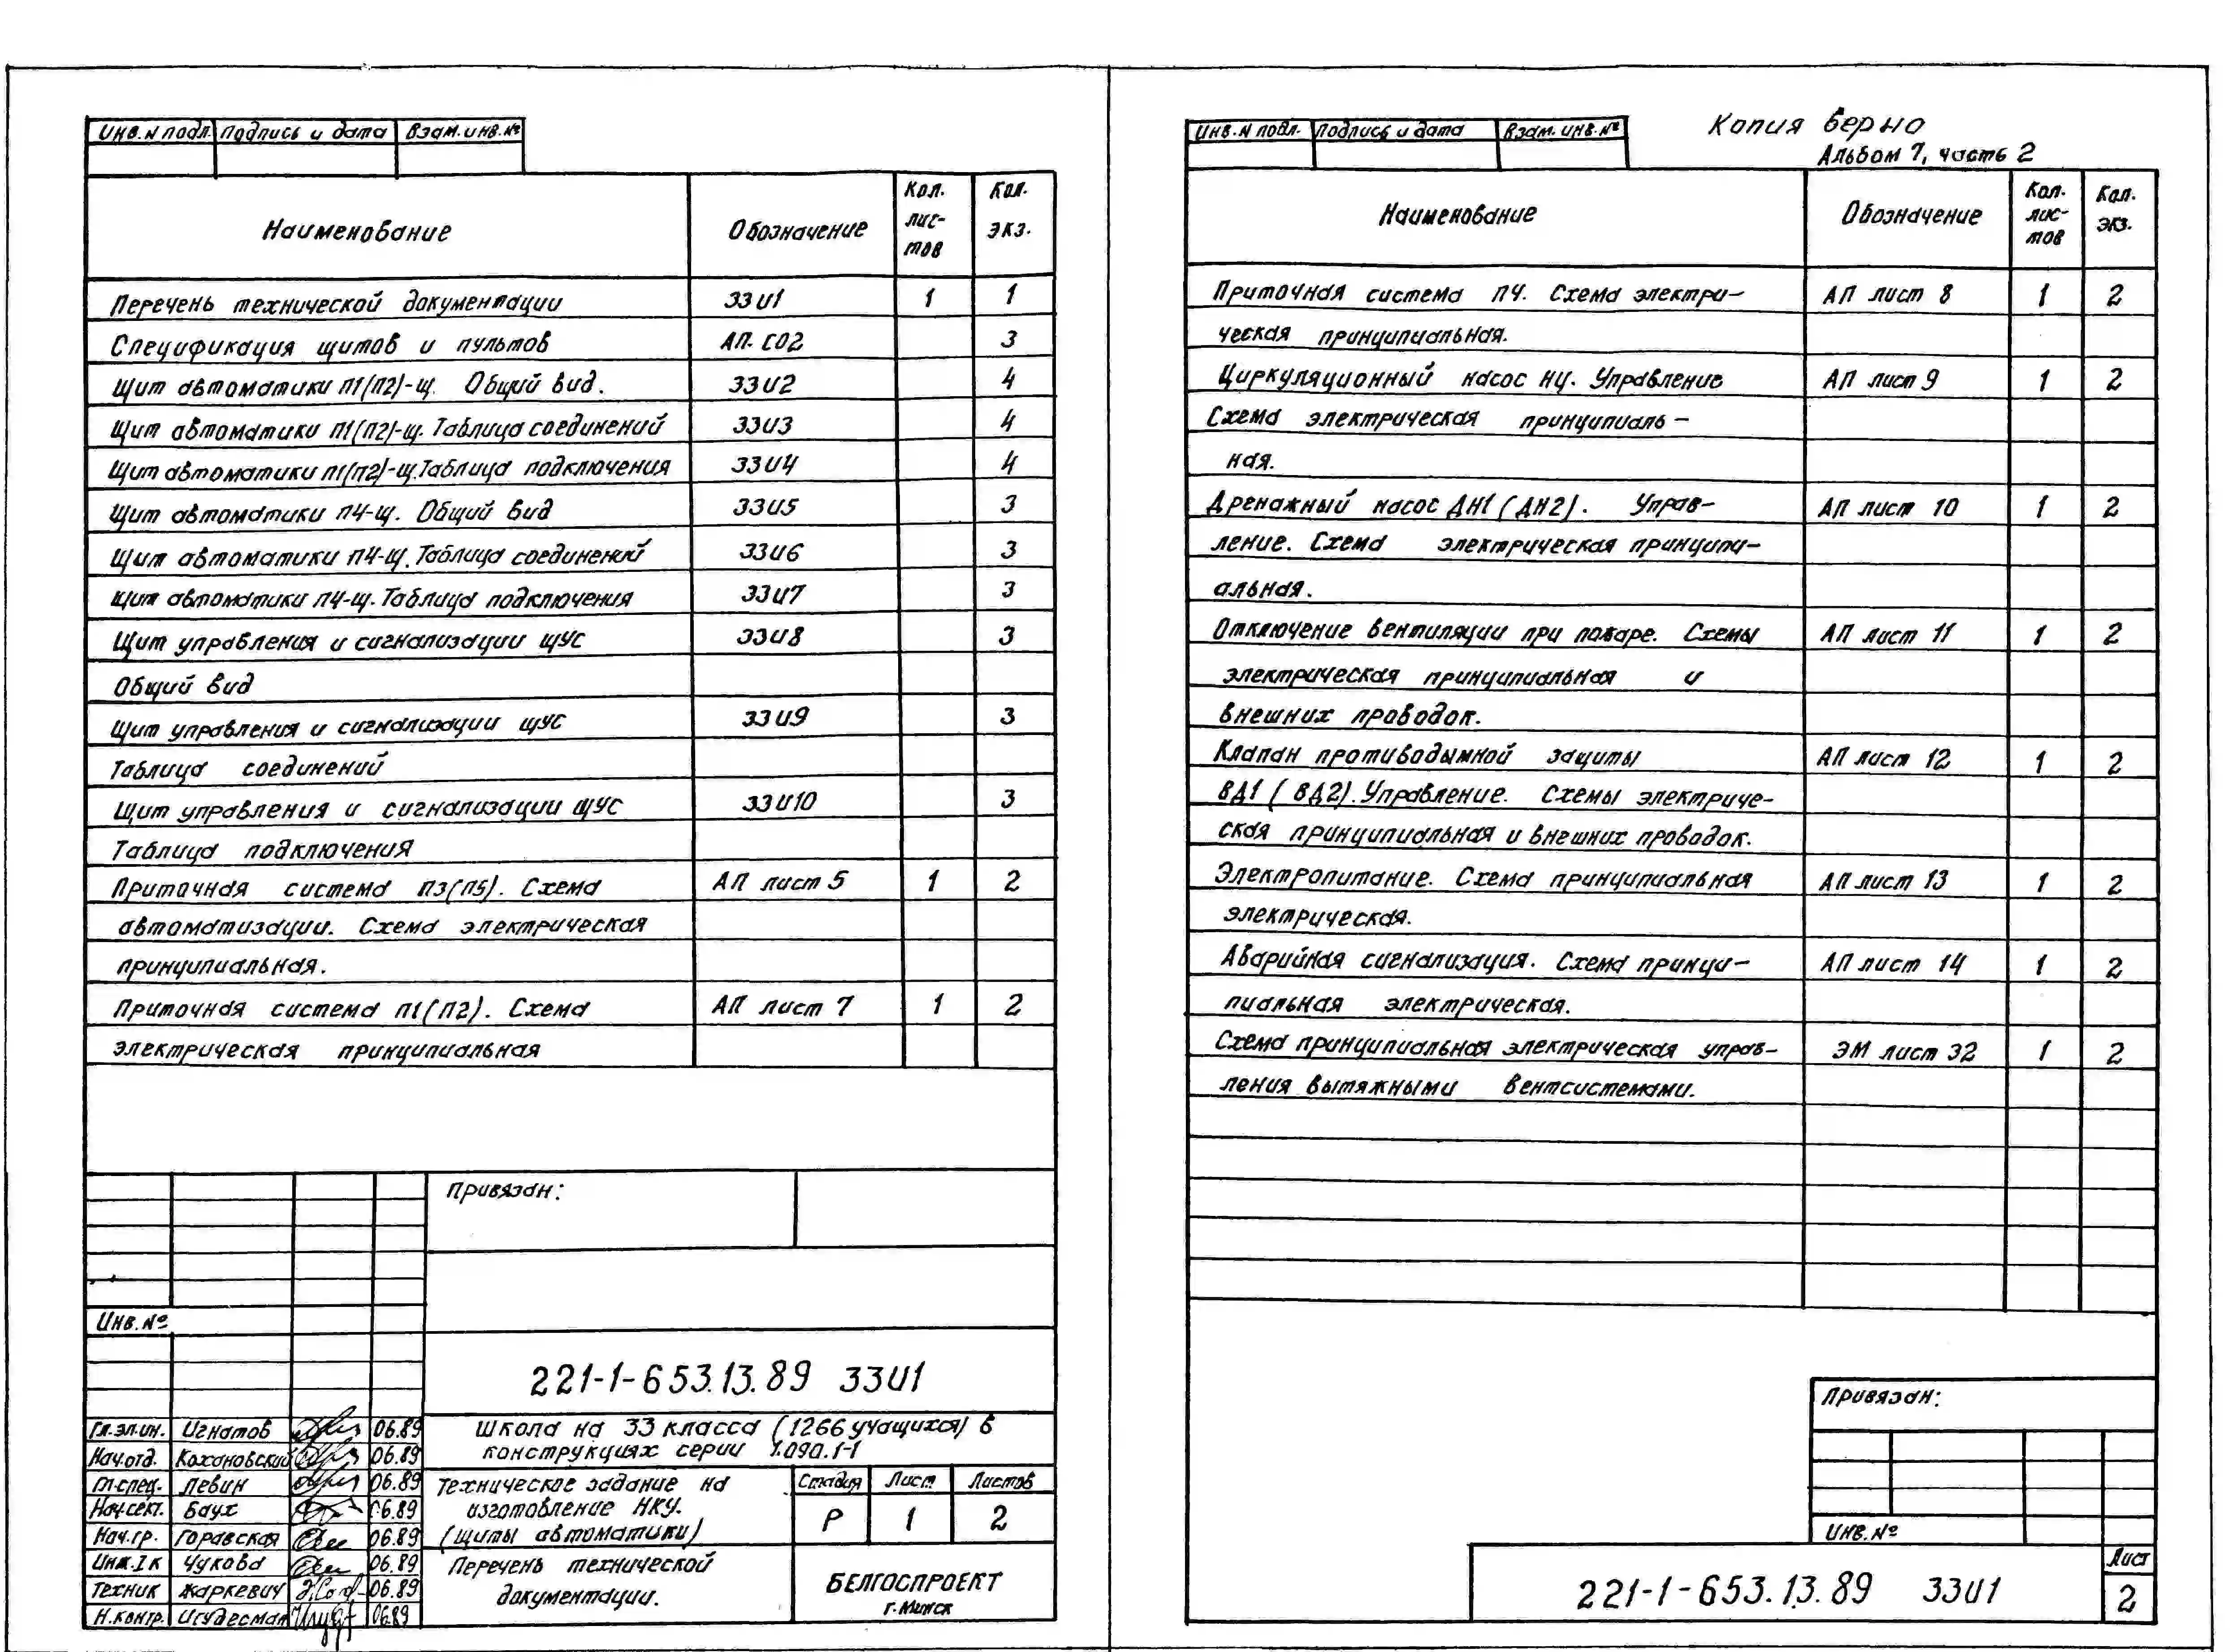 Инв. N подл. Подпись и дата Взам. инв. №
Наименование Обозначение Кол. лис-тов Кол. экз.
Перечень технической документации ЗЗИ1 1 1
Спецификация щитов и пультов АП. СО2 3
Щит автоматики П1(П2)-щ. Общий вид. ЗЗИ2 4
Щит автоматики П1(П2)-щ. Таблица соединений ЗЗИ3 4
Щит автоматики П1(П2)-щ. Таблица подключения ЗЗИ4 4
Щит автоматики П4-щ. Общий вид ЗЗИ5 3
Щит автоматики П4-щ. Таблица соединений ЗЗИ6 3
Щит автоматики П4-щ. Таблица подключения ЗЗИ7 3
Щит управления и сигнализации ЩУС ЗЗИ8 3
Общий вид
Щит управления и сигнализации ЩУС ЗЗИ9 3
Таблица соединений
Щит управления и сигнализации ЩУС ЗЗИ10 3
Таблица подключения
Приточная система П3(П5). Схема АП лист 5 1 2
автоматизации. Схема электрическая
принципиальная.
Приточная система П1(П2). Схема АП лист 7 1 2
электрическая принципиальная
Привязан:
Инв. №
221-1-653.13.89 ЗЗИ1
Гл. эл. ин. Игнатов 06.89
Нач. отд. Кохановский 06.89
Гл. спец. Левин 06.89
Нач. сект. Баух 06.89
Нач. гр. Горавская 06.89
Инж. I к Чукова 06.89
Техник Жаркевич 06.89
Н. контр. Игудесман 06.89
Школа на 33 класса (1266 учащихся) в
конструкциях серии 1.090.1-1
Техническое задание на
изготовление НКУ.
(щиты автоматики)
Стадия Лист Листов
Р 1 2
Перечень технической
документации.
БЕЛГОСПРОЕКТ
г. Минск
Инв. N подл. Подпись и дата Взам. инв. №
Копия верно
Альбом 7, часть 2
Наименование Обозначение Кол. лис-тов Кол. экз.
Приточная система П4. Схема электри- АП лист 8 1 2
ческая принципиальная.
Циркуляционный насос НЦ. Управление АП лист 9 1 2
Схема электрическая принципиаль-
ная.
Дренажный насос ДН1 (ДН2). Управ- АП лист 10 1 2
ление. Схема электрическая принципи-
альная.
Отключение вентиляции при пожаре. Схемы АП лист 11 1 2
электрическая принципиальная и
внешних проводок.
Клапан противодымной защиты АП лист 12 1 2
ВД1 (ВД2). Управление. Схемы электриче-
ская принципиальная и внешних проводок.
Электропитание. Схема принципиальная АП лист 13 1 2
электрическая.
Аварийная сигнализация. Схема принци- АП лист 14 1 2
пиальная электрическая.
Схема принципиальная электрическая управ- ЭМ лист 32 1 2
ления вытяжными вентсистемами.
Привязан:
Инв. №
221-1-653.13.89 ЗЗИ1
Лист
2